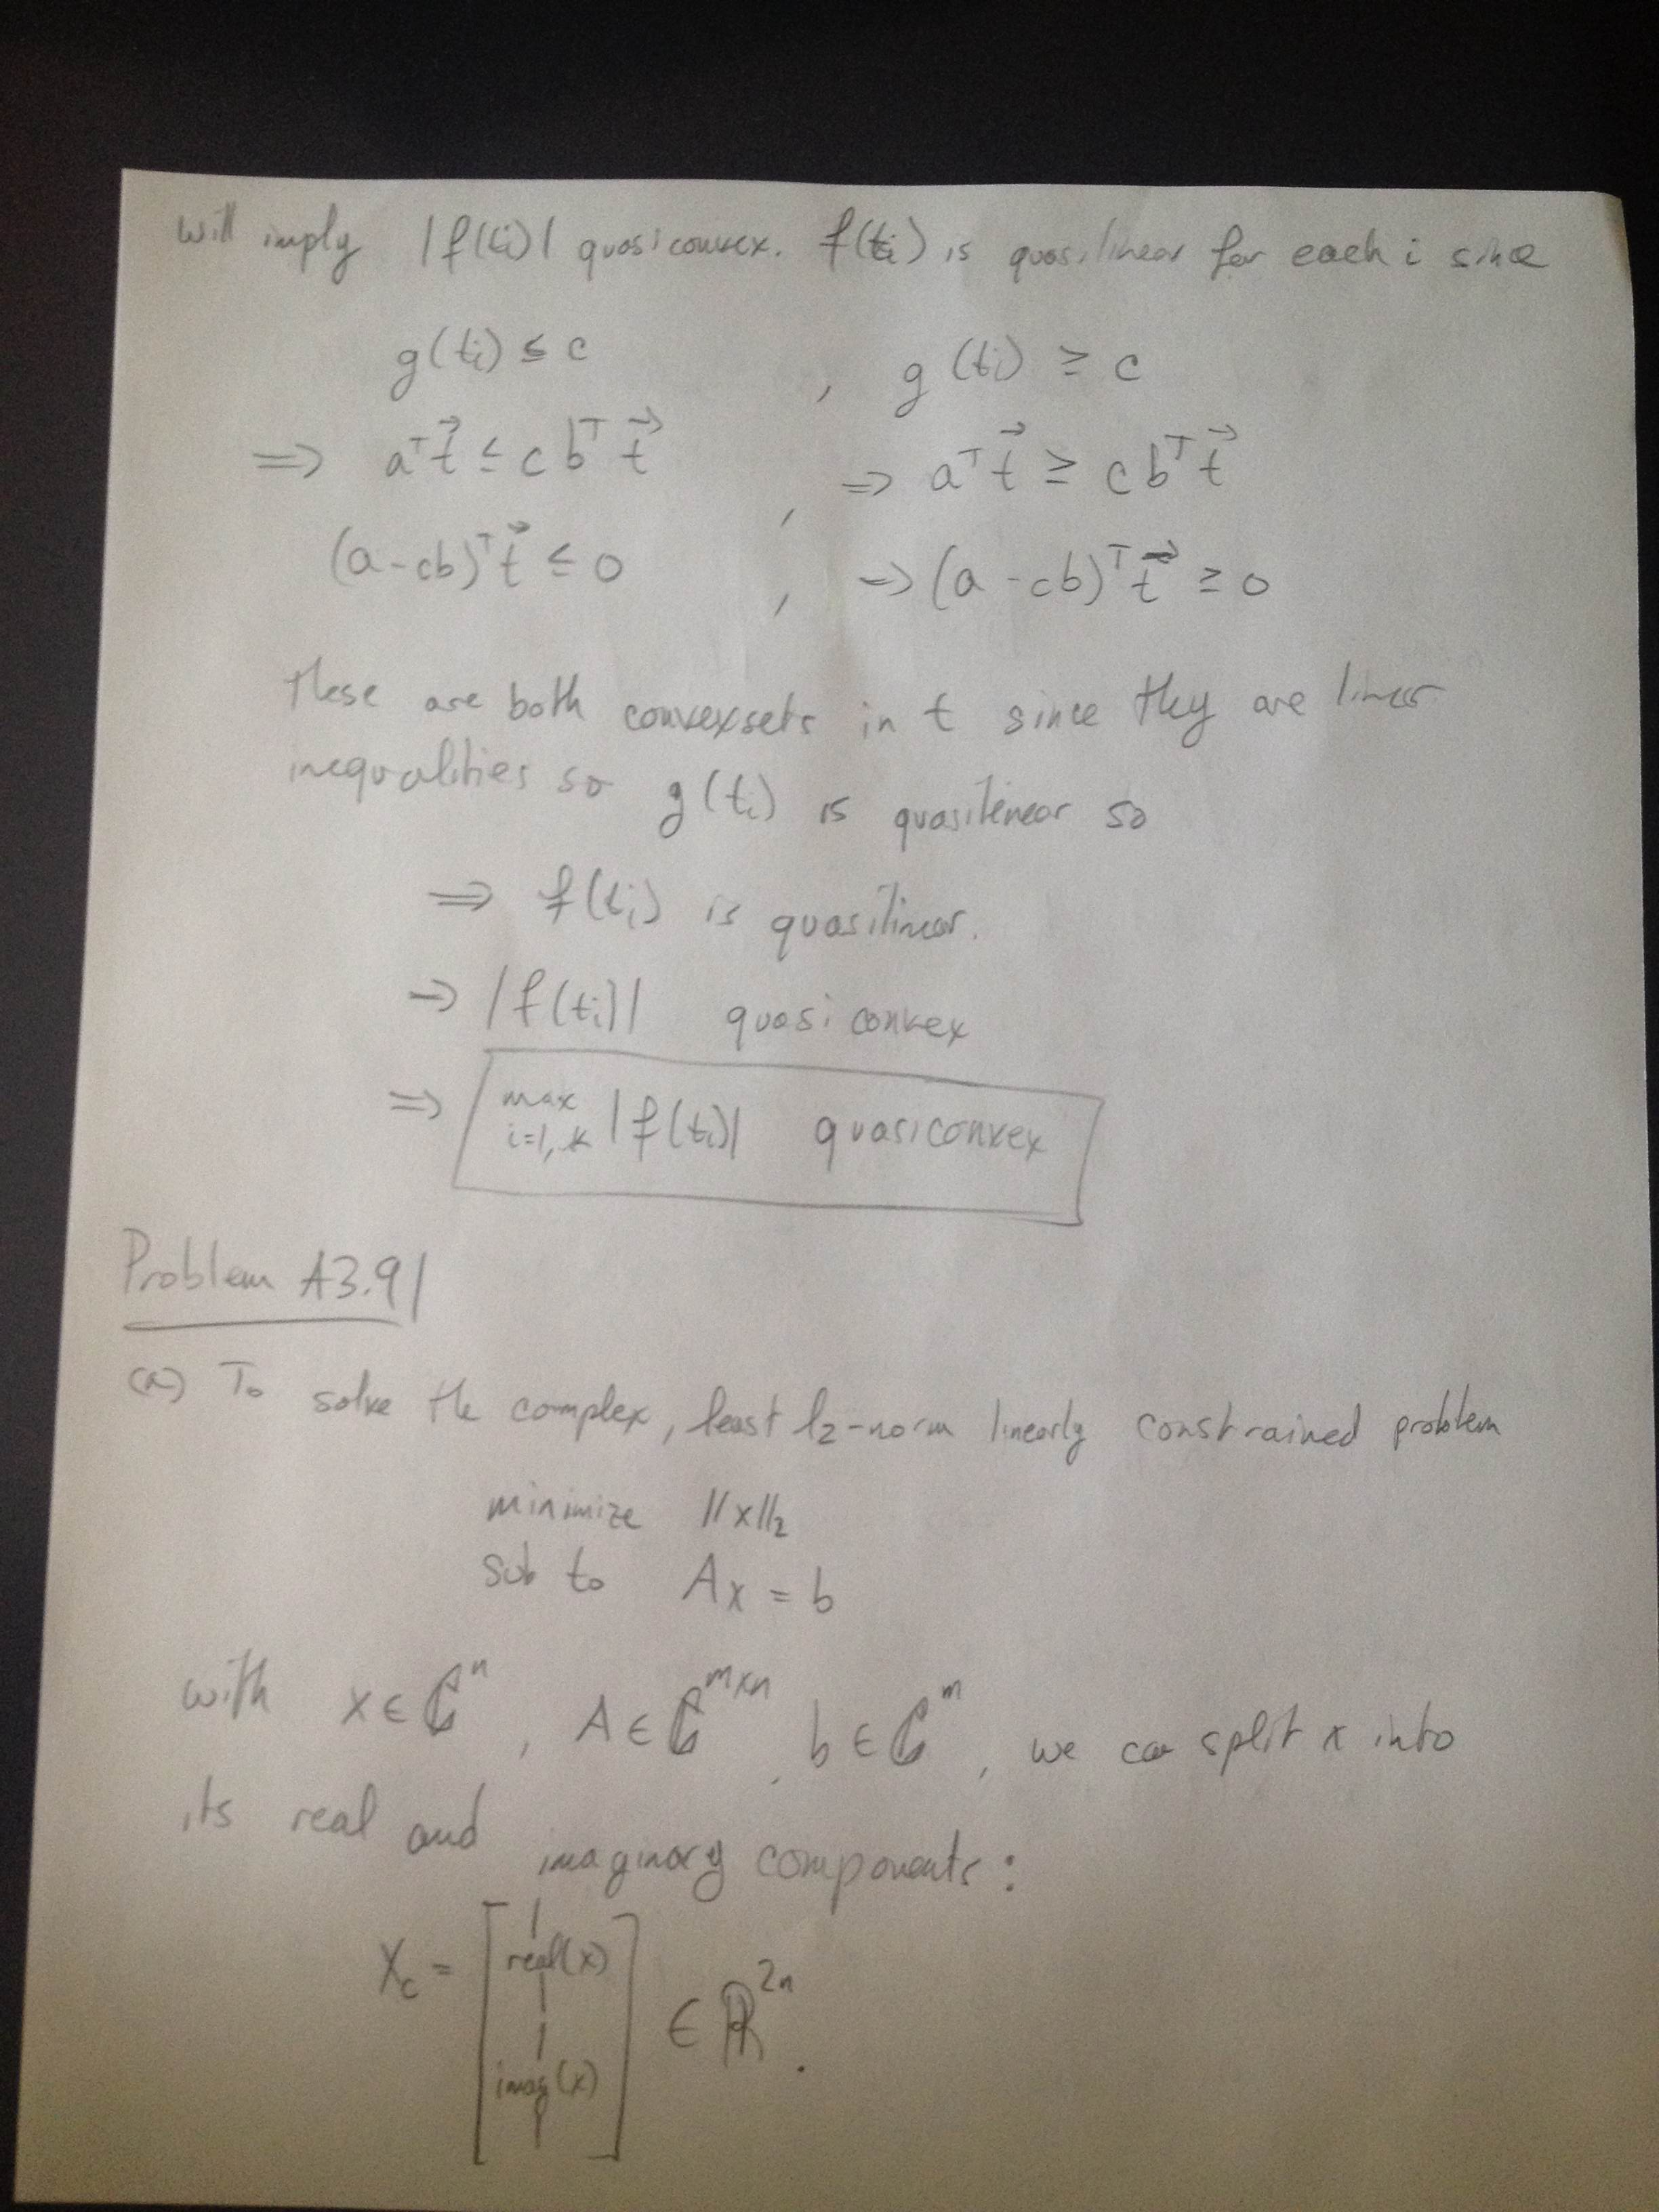 will imply |f(tᵢ)| quasiconvex. f(tᵢ) is quasilinear for each i since
g(tᵢ) ≤ c , g(tᵢ) ≥ c
⟹ aᵀt⃗ ≤ c bᵀt⃗ , ⟹ aᵀt⃗ ≥ c bᵀt⃗
(a-cb)ᵀt⃗ ≤ 0 , ⟹ (a-cb)ᵀt⃗ ≥ 0
These are both convex sets in t since they are linear
inequalities so g(tᵢ) is quasilinear so
⟹ f(tᵢ) is quasilinear.
⟹ |f(tᵢ)| quasiconvex
⟹ max i=1,..k |f(tᵢ)| quasiconvex
Problem A3.9|
(a) To solve the complex, least l₂-norm linearly constrained problem
minimize ||x||₂
sub to Ax = b
with x ∈ ℂⁿ, A ∈ ℂᵐˣⁿ, b ∈ ℂᵐ, we can split x into
its real and imaginary components:
X_c = [ real(x)
imag(x) ] ∈ ℝ²ⁿ.